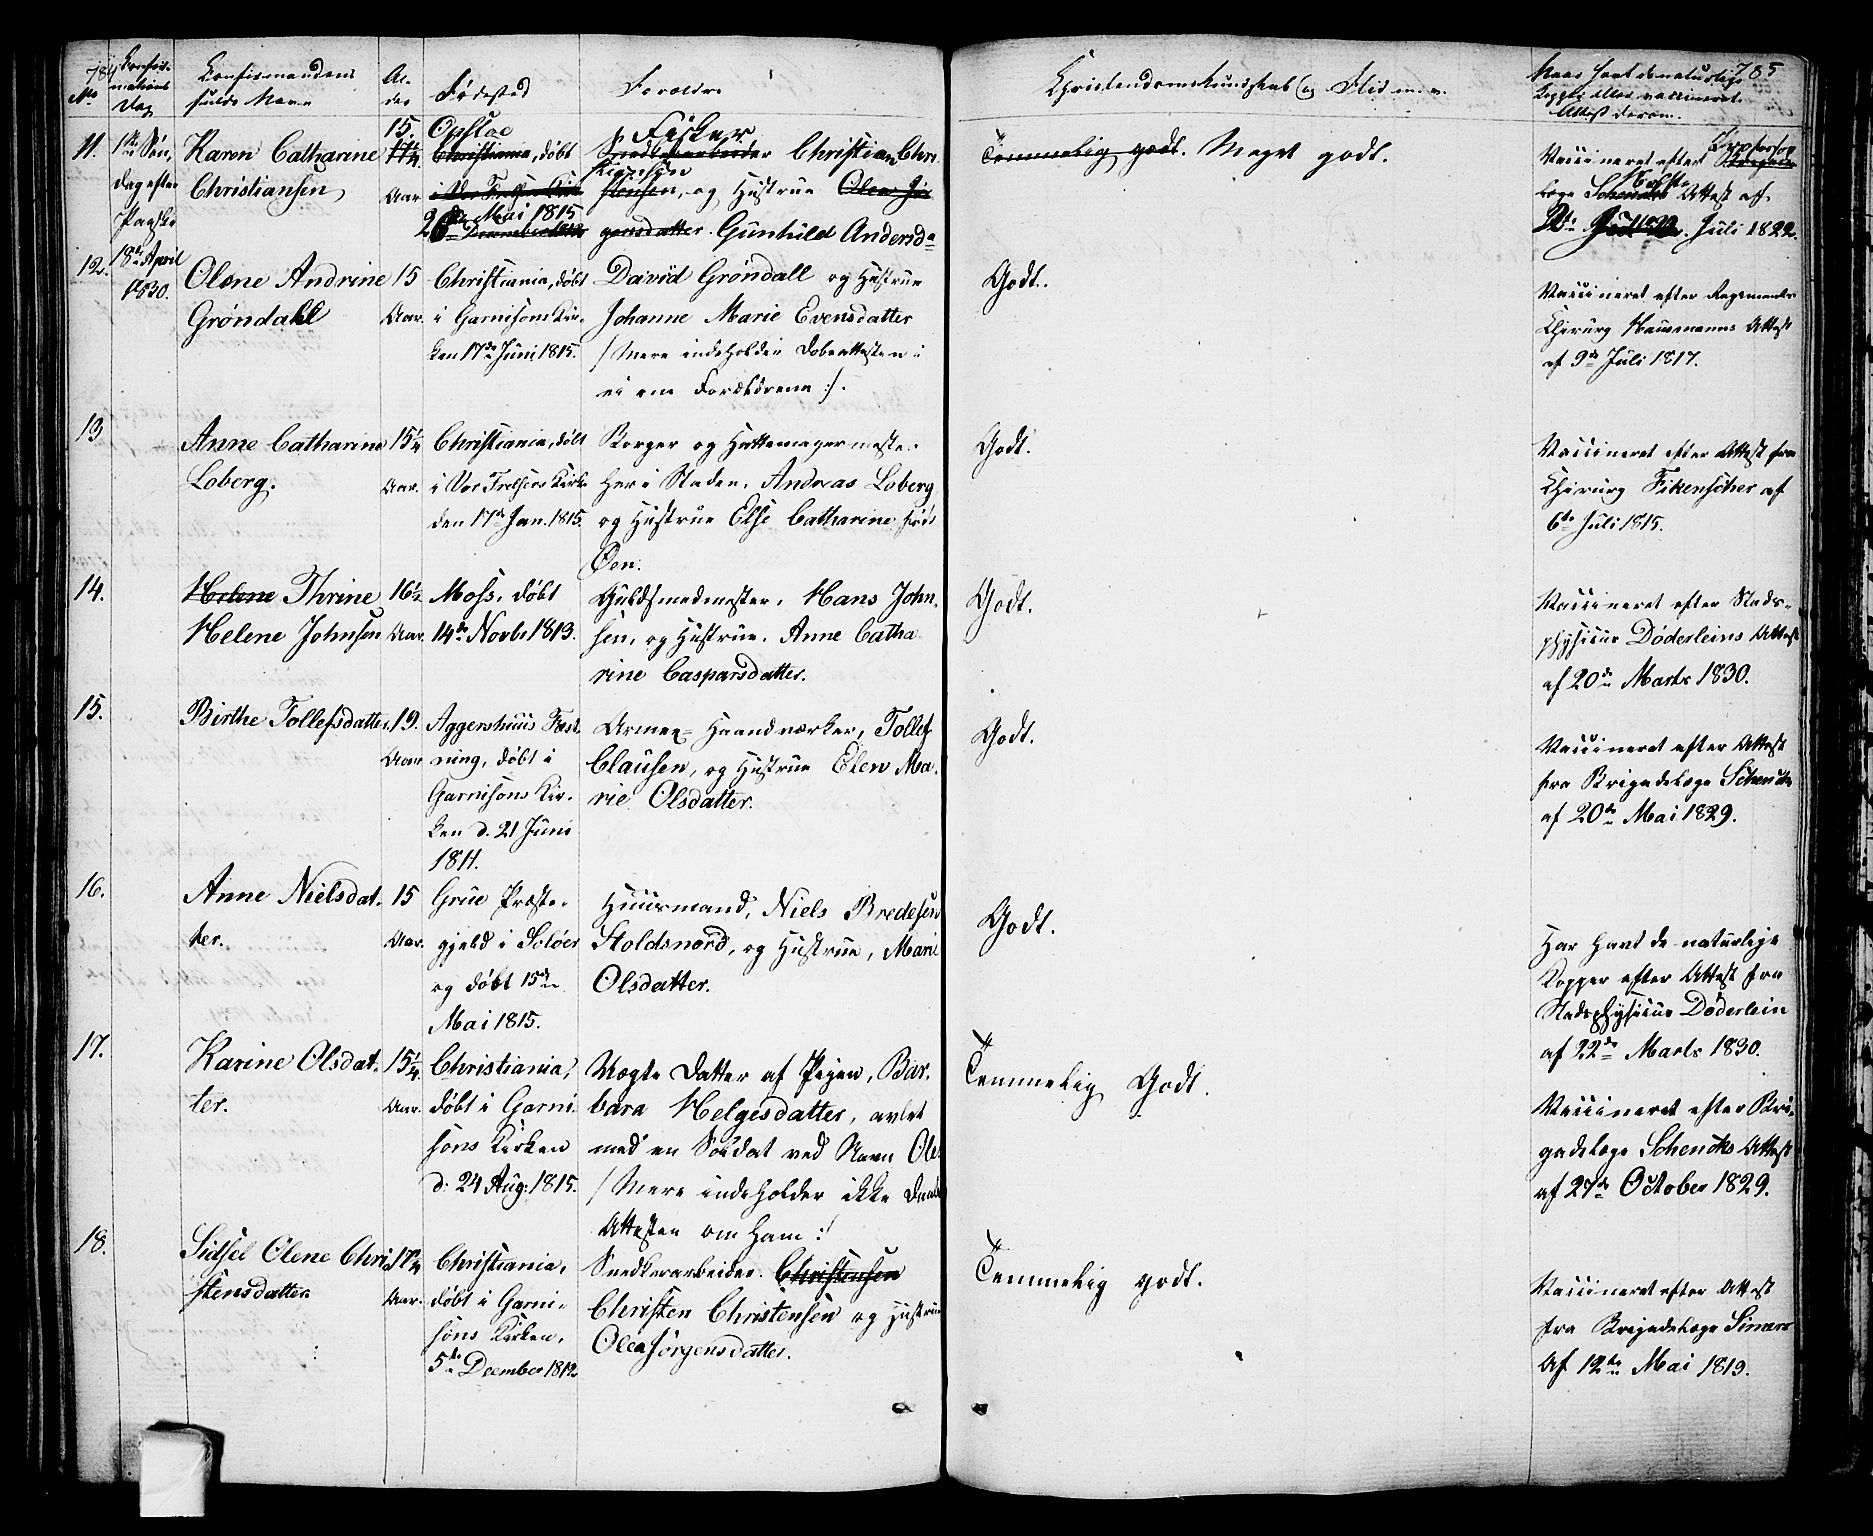 784
785
No
Confir-
mations
Dag
Confirmandens
fulde Navn
Al-
der
Fødested
Forældre
Christendomskundskab og Flid m. v.
Naar havt de naturlige
Kopper eller vaccineret.
Attest derom.
11.
1ste Søn,
dag efter
Paaske
18de April
1830.
Karen Catharine
Christiansen
15.
Aar.
Opsloe
Christiania, døbt
i Vor Frelsers Kir-
26de Mai 1815
Fisker
Snedkerarbeider Christian Chri-
stensen, og Hustrue Olea Jør-
gensdatter. Gunhild Andersd=
Temmelig godt. Meget godt.
Vaccineret efter
Læge Attest af
Juli 1822.
12.
Olene Andrine
Grøndahl
15
Aar.
Christiania, døbt
i Garnisons Kir-
ken 17de Juni 1815.
David Grøndall og Hustrue
Johanne Marie Evensdatter
/ Mere indeholder Døbeattesten i-
ei om Forældrene :/.
Godt.
Vaccineret efter Regements
Chirurg Hausmanns Attest
af 9de Juli 1817.
13
Anne Catharine
Loberg.
15¼
Aar.
Christiania, døbt
i Vor Frelsers Kirke
den 17de Jan. 1815.
Borger og Hattemagermeste-
her i Staden, Andreas Loberg
og Hustrue Else Catharine født
Øen.
Godt.
Vaccineret efter Attest fra
Chirurg Fikenscher af
6te Juli 1815.
14.
Helene Thrine
Helene Johnsen
16½
Aar.
Moss, døbt
14de Novbr 1813.
Guldsmedmester, Hans John-
sen, og Hustrue. Anne Catha
rine Casparsdatter.
Godt.
Vaccineret efter Stads-
physicus Døderleins Attest
af 20de Marts 1830.
15.
Birthe Tollefsdatter.
19.
Aar
Aggershuus Fæst-
ning, døbt i
Garnisons Kir-
ken d. 21 Juni
1811.
Armee= Haandværker, Tollef
Clausen, og Hustrue Elen Ma-
rie Olsdatter.
Godt.
Vaccineret efter Attest
fra Brigadelæge Schenck
af 20de Mai 1829.
16.
Anne Nielsdat-
ter.
15
Aar.
Grue Præste-
gjeld i Soløer
og døbt 15de
Mai 1815.
Huusmand, Niels Bredesen
Stoldsnord, og Hustrue, Marie
Olsdatter.
Godt.
Har havt de naturlige
Kopper efter Attest fra
Stadsphysicus Døderlein
af 22de Marts 1830.
17.
Karine Olsdat-
ter.
15¼
Aar.
Christiania,
døbt i Garni-
sons Kirken
d: 24 Aug: 1815.
Uægte Datter af Pigen, Bar-
bara Helgesdatter, avlet
med en Soldat ved Navn Ole
/ Mere indeholder ikke Daabs
Attesten om ham :/
Temmelig Godt.
Vaccineret efter Bri-
gadelæge Schencks Attest
af 27de October 1829.
18.
Sidsel Olene Chri-
stensdatter
17¼
Aar.
Christiania,
døbt i Garni-
sons Kirken,
5te December 1812
Snedkerarbeider. Christensen
Christen Christensen og Hustrue
Olea Jørgensdatter.
Temmelig godt.
Vaccineret efter Attest
fra Brigadelæge Simers
Af 12te Mai 1819.